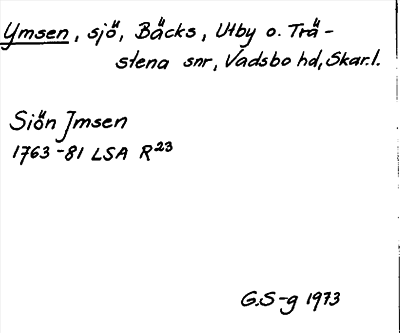 Ymsen, sjö, Bäcks, Utby o. Trä-
stena snr, Vadsbo hd, Skar.l.
Siön Jmsen
1763-81 LSA R23
G.S-g 1973